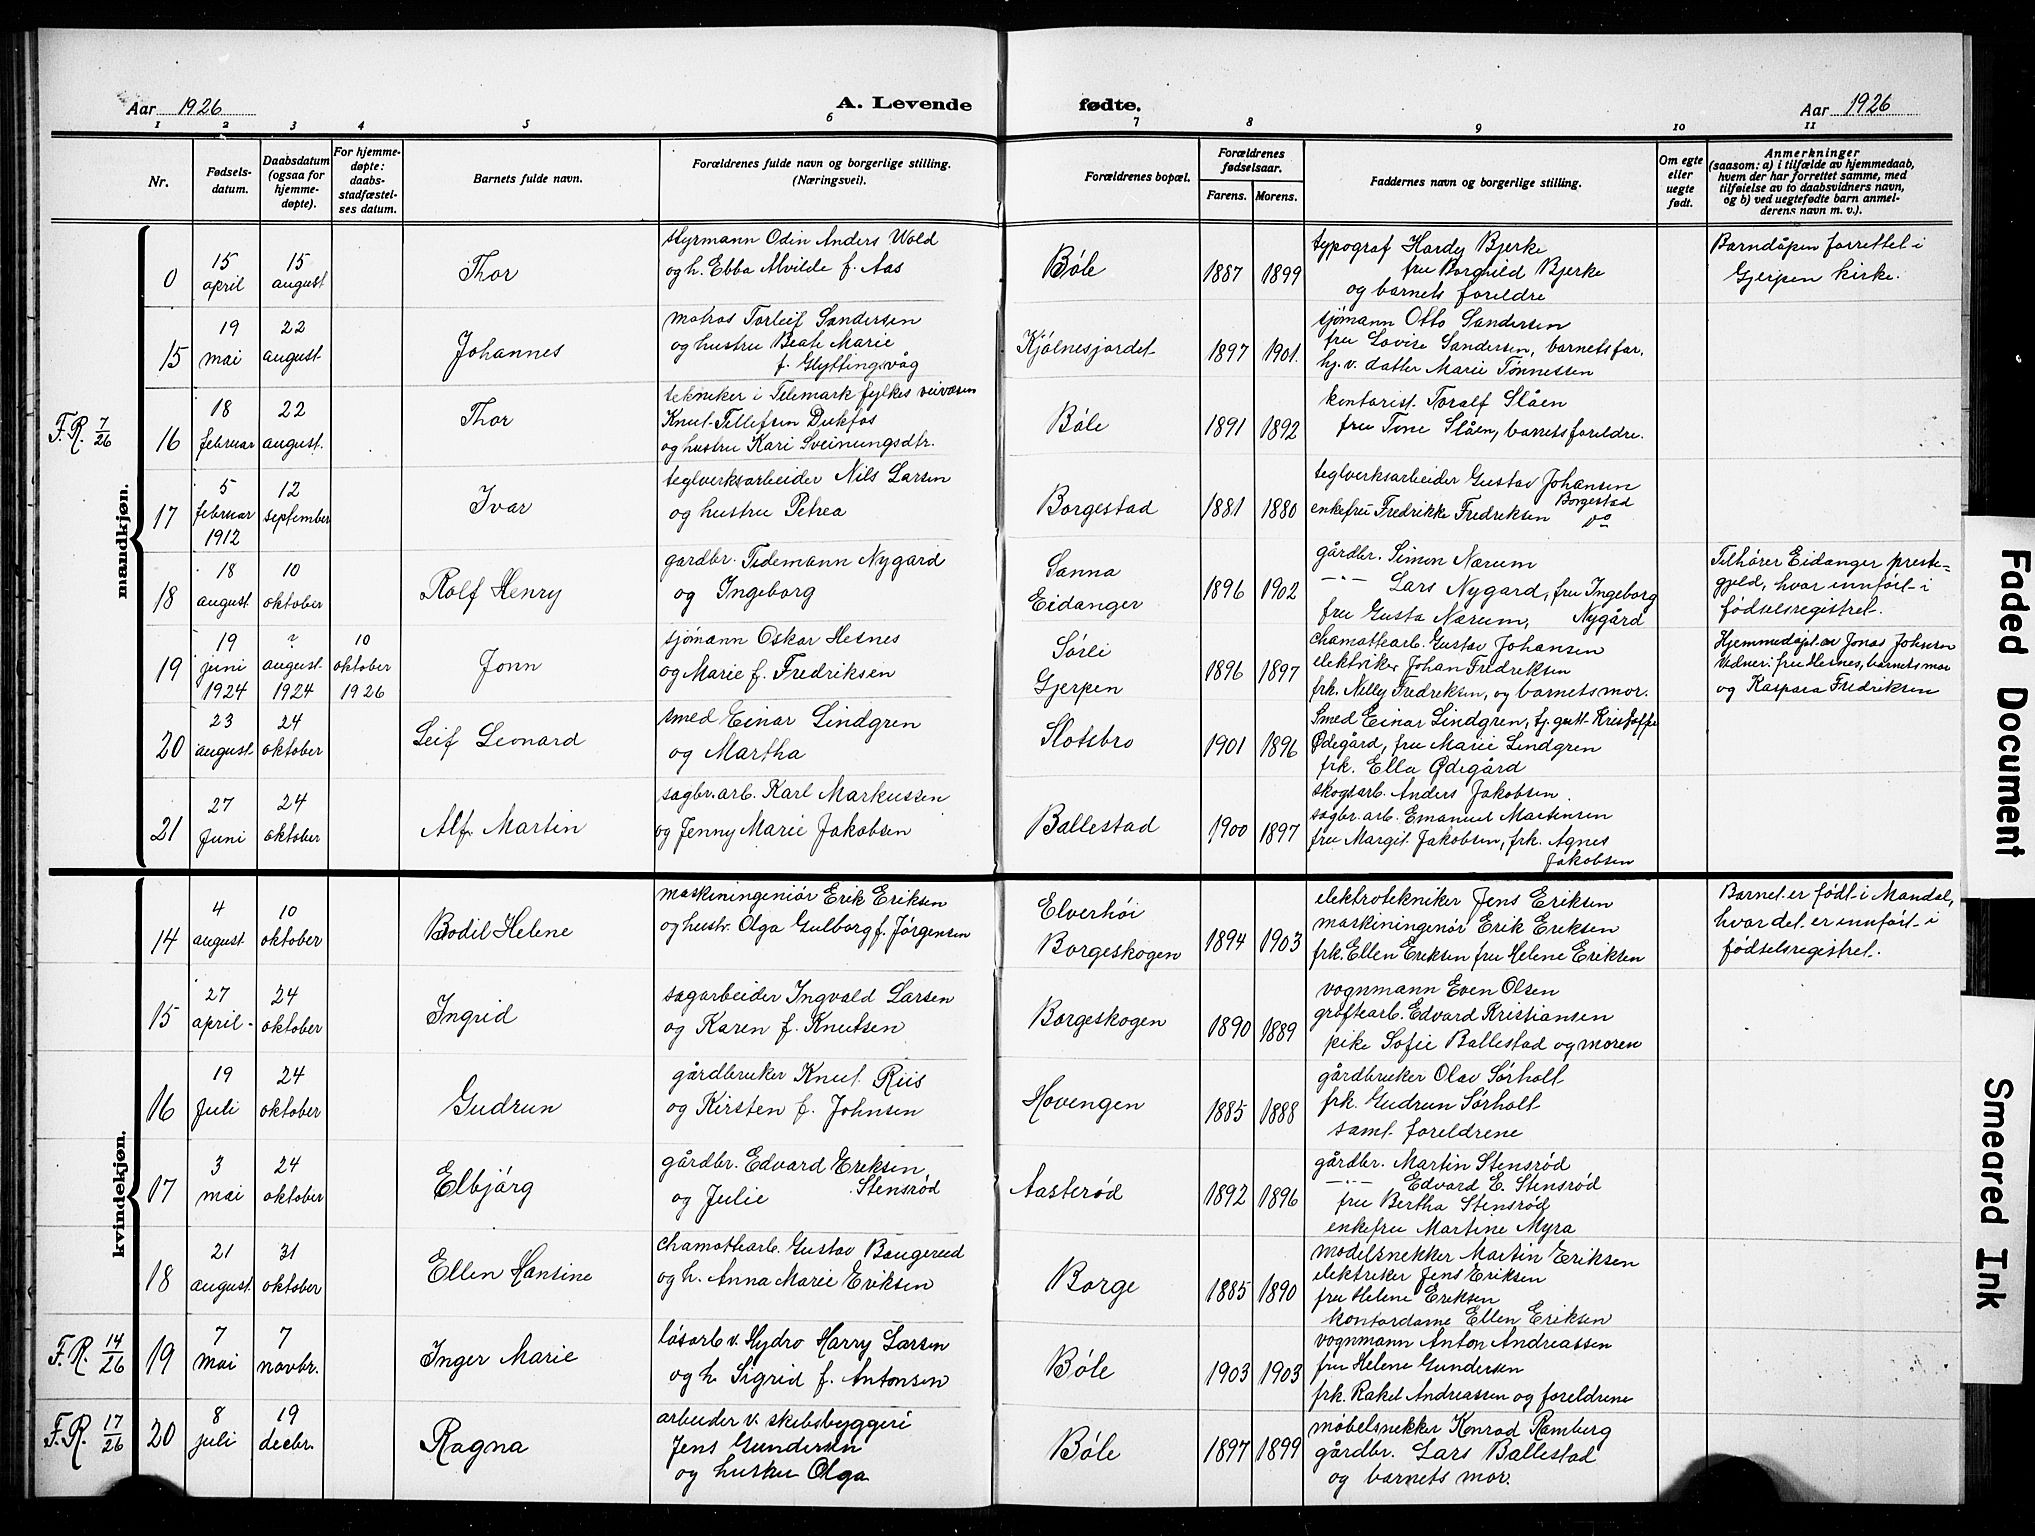 Aar 1926
A. Levende fødte.
Aar 1926
1 2 3 4 5 6 7 8 9 10 11
Nr.
Fødsels-
datum.
Daabsdatum
(ogsaa for
hjemme-
døpte).
For hjemme-
døpte:
daabs-
stadfæstel-
ses datum.
Barnets fulde navn.
Forældrenes fulde navn og borgerlige stilling.
(Næringsvei).
Forældrenes bopæl.
Forældrenes
fødselsaar.
Farens. Morens.
Faddernes navn og borgerlige stilling.
Om egte
eller
uegte
født.
Anmerkninger
(saasom: a) i tilfælde av hjemmedaab,
hvem der har forrettet samme, med
tilføielse av to daabsvidners navn,
og b) ved uegtefødte barn anmel-
derens navn m. v.).
mandkjøn.
0
15
april
15
august
Thor
styrmann Odin Anders Wold
og h. Ebba Alvilde f. Aas
Bøle
1887 1899
typograf Hardy Bjerke
fru Borghild Bjerke
og barnets foreldre
Barndåpen forrettet i
Gjerpen kirke.
15
19
mai
22
august
Johannes
matros Torleif Sandersen
og hustru Beate Marie
f. Glyttingsvåg
Kjølnesjordet
1897 1901.
sjømann Otto Sandersen
fru Lovise Sandersen, barnets far,
hj. v. datter Marie Tønnessen
F.R. 7/26
16
18
februar
22
august.
Thor
tekniker i Telemark fylkes veivæsen
Knut Tellefsen Dukfos
og hustru Kari Sveinungsdtr.
Bøle
1891 1892
kontorist Toralf Slåen
fru Tone Slåen, barnets foreldre.
17
5
februar
1912
12
september
Ivar
teglverksarbeider Nils Larsen
og hustru Petrea
Borgestad
1881 1880
teglverksarbeider Gustav Johansen
Borgestad
enkefru Fredrikke Fredriksen do
18
18
august
10
oktober
Rolf Henry
gardbr. Tidemann Nygård
og Ingeborg
Sanna
Eidanger
1896 1902
gårdbr. Simon Nærum
-"- Lars Nygard, fru Ingeborg
fru Gusta Nærum, Nygård
Tilhører Eidanger preste-
gjeld, hvor innført i
fødselsregistret.
19
19
juni
1924
?
august
1924
10
oktober
1926
Jonn
sjømann Oskar Hesnes
og Marie f. Fredriksen
Sørli
Gjerpen
1896 1897
chamottearb. Gustav Johansen
elektriker Johan Fredriksen
frk. Nelly Fredriksen, og barnets mor.
Hjemmedøpt av Jonas Johnsen
Vidner: fru Hesnes, barnets mor
og Kaspara Fredriksen
20
23
august.
24
oktober
Leif Leonard
smed Einar Lindgren
og Martha
Slotsbro
1901 1896
Smed Einar Lindgren, tj. gutt Kristoffer
Ødegård, fru Marie Lindgren
frk. Ella Ødegård
21
27
Juni
24
oktober
Alf Martin
sagbr. arb. Karl Markussen
og Jenny Marie Jakobsen
Ballestad
1900 1897
skogsarb. Anders Jakobsen.
sagbr. arb. Emanuel Martinsen
fru Margit Jakobsen, frk. Agnes
Jakobsen
kvindekjøn.
14
4
august
10
oktober
Bodil Helene
maskiningeniør Erik Eriksen
og hustr. Olga Gulborg f. Jørgensen
Elverhøi
Borgeskogen
1894 1903
elektrotekniker Jens Eriksen
maskiningeniør Erik Eriksen
frk. Ellen Eriksen fru Helene Eriksen
Barnet er født i Mandal,
hvor det er innført i
fødselsregistret.
15
27
april
24
oktober
Ingrid
sagarbeider Ingvald Larsen
og Karen f. Knutsen
Borgeskogen
1890 1889
vognmann Even Olsen
grøftearb. Edvard Kristiansen
pike Sofie Ballestad og moren
16
19
Juli
24
oktober
Gudrun
gårdbruker Knut Riis
og Kirsten f. Johnsen
Hovengen
1885 1888
gårdbruker Olav Sørholt
frk. Gudrun Sørholt
samt foreldrene
17
3
mai
24
oktober
Elbjørg
gårdbr. Edvard Eriksen
Stensrød
og Julie
Aasterød
1892 1896
gårdbr. Martin Stensrød
-"- Edvard E. Stensrød
fru Bertha Stensrød
enkefru Martine Myra
18
21
august.
31
oktober
Ellen Hansine
chamottearb. Gustav Baugerud
og h. Anna Marie Eriksen
Borge
1885 1890
modelsnekker Martin Eriksen
elektriker Jens Eriksen
fru Helene Eriksen
kontordame Ellen Eriksen
F.R. 14/26
19
7
mai
7
novbr.
Inger Marie
løsarb v. Hydro Harry Larsen
og h. Sigrid f. Antonsen
Bøle
1903 1903
vognmann Anton Andreassen
fru Helene Gundersen
frk. Rakel Andreassen og foreldrene
F.R. 17/26
20
8
juli
19
decbr.
Ragna
arbeider v. skibsbyggeri
Jens Gundersen
og hustru Olga
Bøle
1897 1899
møbelsnekker Konrad Ramberg
gårdbr. Lars Ballestad
og barnets mor.
Faded Document
Smeared Ink